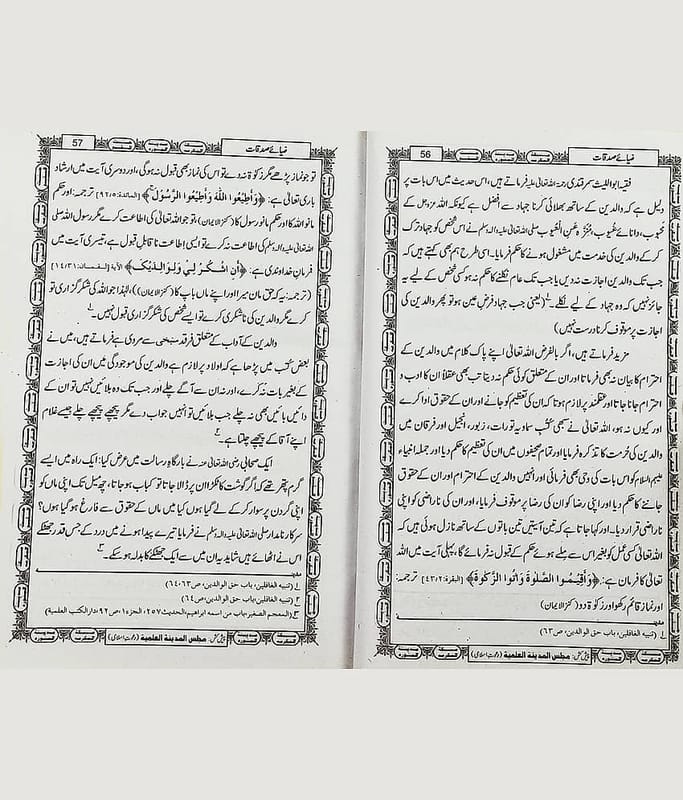 ضیائے صدقات
56
فقیہ ابو اللیث سمرقندی رحمۃ اللہ تعالیٰ علیہ فرماتے ہیں، اس حدیث میں اس بات پر
دلیل ہے کہ والدین کے ساتھ بھلائی کرنا جہاد سے افضل ہے کیونکہ اللہ عزوجل کے
محبوب، دانائے غیوب، مُنَزَّہ عَنِ العُیوب صلی اللہ تعالیٰ علیہ والہ وسلم نے اس شخص کو جہاد ترک
کر کے والدین کی خدمت میں مشغول ہونے کا حکم فرمایا۔ اسی طرح ہم بھی کہتے ہیں کہ
جب تک والدین اجازت نہ دیں یا جب تک عام نکلنے کا حکم نہ ہو کسی شخص کے لیے یہ
جائز نہیں کہ وہ جہاد کے لیے نکلے۔ (یعنی جب جہاد فرض عین ہو تو پھر والدین کی
اجازت پر موقوف کرنا درست نہیں)
مزید فرماتے ہیں، اگر بالفرض اللہ تعالیٰ اپنے پاک کلام میں والدین کے
احترام کا بیان نہ بھی فرماتا اور ان کے متعلق کوئی حکم نہ دیتا تب بھی عقلاً ان کا ادب و
احترام جانا جاتا اور عقلمند پر لازم ہوتا کہ ان کی تعظیم کو جانے اور ان کے حقوق ادا کرے
اور کیوں نہ ہو، اللہ تعالیٰ نے سبھی کتب سماویہ تورات، زبور، انجیل اور فرقان میں
والدین کی حُرمت کا تذکرہ فرمایا اور تمام صحیفوں میں ان کی تعظیم کا حکم دیا اور جملہ انبیاء
علیہم السلام کو اس بات کی وحی بھی فرمائی اور انہیں والدین کے احترام اور ان کے حقوق
جاننے کا حکم دیا اور اپنی رضا کو ان کی رضا پر موقوف فرمایا، اور ان کی ناراضی کو اپنی
ناراضی قرار دیا۔ اور کہا جاتا ہے کہ تین آیتیں تین باتوں کے ساتھ نازل ہوئی ہیں کہ
اللہ تعالیٰ کسی عمل کو بغیر اس سے ملے ہوئے حکم کے قبول نہ فرمائے گا، پہلی آیت میں اللہ
تعالیٰ کا فرمان ہے: ﴿وَاَقِیْمُوا الصَّلٰوۃَ وَاٰتُوا الزَّکٰوۃَ﴾ [البقرۃ: ۴۳/۲] ترجمہ:
اور نماز قائم رکھو اور زکوٰۃ دو (کنز الایمان)
۱ (تنبیہ الغافلین، باب حق الوالدین، ص۶۳)
پیش کش: مجلس المدینۃ العلمیۃ (دعوت اسلامی)
ضیائے صدقات
57
تو جو نماز پڑھے مگر زکوٰۃ نہ دے تو اس کی نماز بھی قبول نہ ہوگی، اور دوسری آیت میں ارشاد
باری تعالیٰ ہے: ﴿وَاَطِیْعُوا اللّٰہَ وَاَطِیْعُوا الرَّسُوْلَ﴾ [المائدۃ: ۹۲/۵] ترجمہ: اور حکم
مانو اللہ کا اور حکم مانو رسول کا (کنز الایمان)، تو جو اللہ تعالیٰ کی اطاعت کرے مگر رسول اللہ صلی
اللہ تعالیٰ علیہ والہ وسلم کی اطاعت نہ کرے تو ایسی اطاعت نا قابل قبول ہے، تیسری آیت میں
فرمان خداوندی ہے: ﴿اَنِ اشْکُرْ لِیْ وَلِوَالِدَیْکَ﴾ الآیۃ [لقمان: ۱۴/۳۱]
(ترجمہ: یہ کہ حق مان میرا اور اپنے ماں باپ کا (کنز الایمان))، لہٰذا جو اللہ کی شکر گزاری تو
کرے مگر والدین کی ناشکری کرے تو ایسے شخص کی شکر گزاری قبول نہیں۔ ۱
والدین کے آداب کے متعلق فرقد سبخی سے مروی ہے فرماتے ہیں، میں نے
بعض کتب میں پڑھا ہے کہ اولاد پر لازم ہے والدین کی موجودگی میں ان کی اجازت
کے بغیر بات نہ کرے، اور نہ ان سے آگے چلے اور جب تک وہ بلائیں نہیں تو ان کے
دائیں بائیں بھی نہ چلے جب بلائیں تو انہیں جواب دے مگر پیچھے پیچھے چلے جیسے غلام
اپنے آقا کے پیچھے چلتا ہے۔ ۲
ایک صحابی رضی اللہ تعالیٰ عنہ نے بارگاہِ رسالت میں عرض کیا: ایک راہ میں ایسے
گرم پتھر تھے کہ اگر گوشت کا ٹکڑا ان پر ڈالا جاتا تو کباب ہو جاتا، چھ میل تک اپنی ماں کو
اپنی گردن پر سوار کر کے لے گیا ہوں کیا میں ماں کے حقوق سے فارغ ہو گیا ہوں؟
سرکار نامدار صلی اللہ تعالیٰ علیہ والہ وسلم نے فرمایا تیرے پیدا ہونے میں درد کے جس قدر جھٹکے
اس نے اٹھائے ہیں شاید یہ ان میں سے ایک جھٹکے کا بدلہ ہو سکے۔ ۳
۱ (تنبیہ الغافلین، باب حق الوالدین، ص۶۳،۶۴)
۲ (تنبیہ الغافلین، باب حق الوالدین، ص۶۴)
۳ (المعجم الصغیر، باب من اسمہ ابراھیم، الحدیث ۲۵۷، الجزء۱، ص۹۲، دار الکتب العلمیۃ)
پیش کش: مجلس المدینۃ العلمیۃ (دعوت اسلامی)